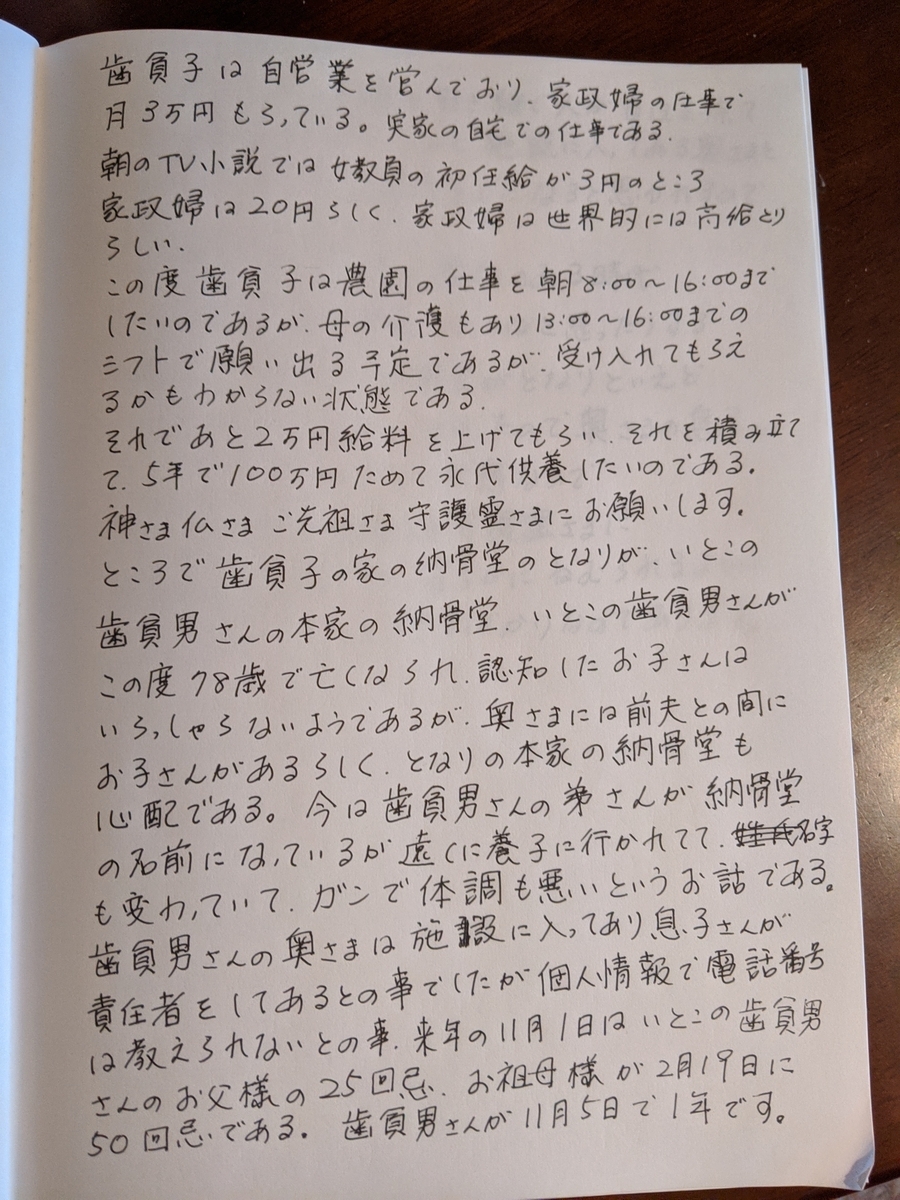 歯負子は自営業を営んでおり、家政婦の仕事で
月3万円もらっている。実家の自宅での仕事である。
朝のTV小説では女教員の初任給が3円のところ
家政婦は20円らしく、家政婦は世界的には高給とり
らしい。
この度歯負子は農園の仕事を朝8:00〜16:00まで
したいのであるが、母の介護もあり13:00〜16:00までの
シフトで願い出る予定であるが、受け入れてもらえ
るかもわからない状態である。
それであと2万円給料を上げてもらい、それを積み立て
て、5年で100万円ためて永代供養したいのである。
神さま仏さまご先祖さま守護霊さまにお願いします。
ところで歯負子の家の納骨堂のとなりが、いとこの
歯負男さんの本家の納骨堂、いとこの歯負男さんが
この度78歳で亡くなられ、認知したお子さんは
いらっしゃらないようであるが、奥さまには前夫との間に
お子さんがあるらしく、となりの本家の納骨堂も
心配である。今は歯負男さんの弟さんが納骨堂
の名前になっているが遠くに養子に行かれてて、名字
も変わっていて、ガンで体調も悪いというお話である。
歯負男さんの奥さまは施設に入ってあり息子さんが
責任者をしてあるとの事でしたが個人情報で電話番号
は教えられないとの事、来年の11月1日はいとこの歯負男
さんのお父様の25回忌、お祖母様が2月19日に
50回忌である。歯負男さんが11月5日で1年です。